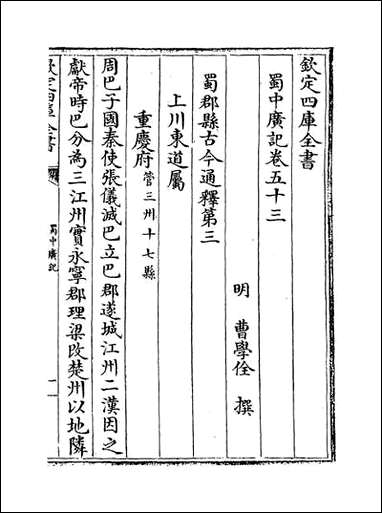 欽定四庫全書
蜀中廣記卷五十三
明 曹學佺 撰
蜀郡縣古今通釋第三
上川東道屬
重慶府管三州十七縣
周巴子國秦使張儀滅巴立巴郡遂城江州二漢因之
獻帝時巴分為三江州實永寧郡理梁改楚州以地隣
欽定四庫全書
蜀中廣記
一